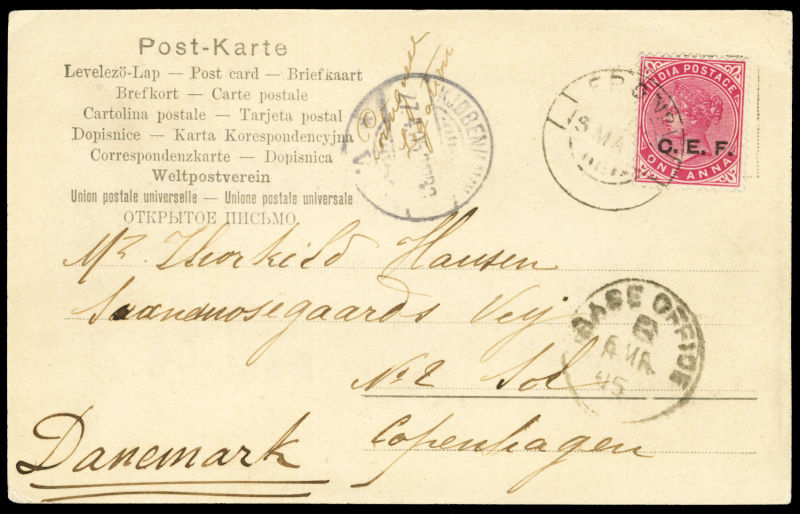 Post-Karte
Levelezö-Lap — Post card — Briefkaart
Brefkort — Carte postale
Cartolina postale — Tarjeta postal
Dopisnice — Karta Korespondencyjna
Correspondenzkarte — Dopisnica
Weltpostverein
Union postale universelle — Unione postale universale
ОТКРЫТОЕ ПИСЬМО.
INDIA POSTAGE
C. E. F.
ONE ANNA
KJOBENHAVN
Mr Thorkild Hansen
Vej
BASE OFFICE
B
No 2
Copenhagen
Danemark